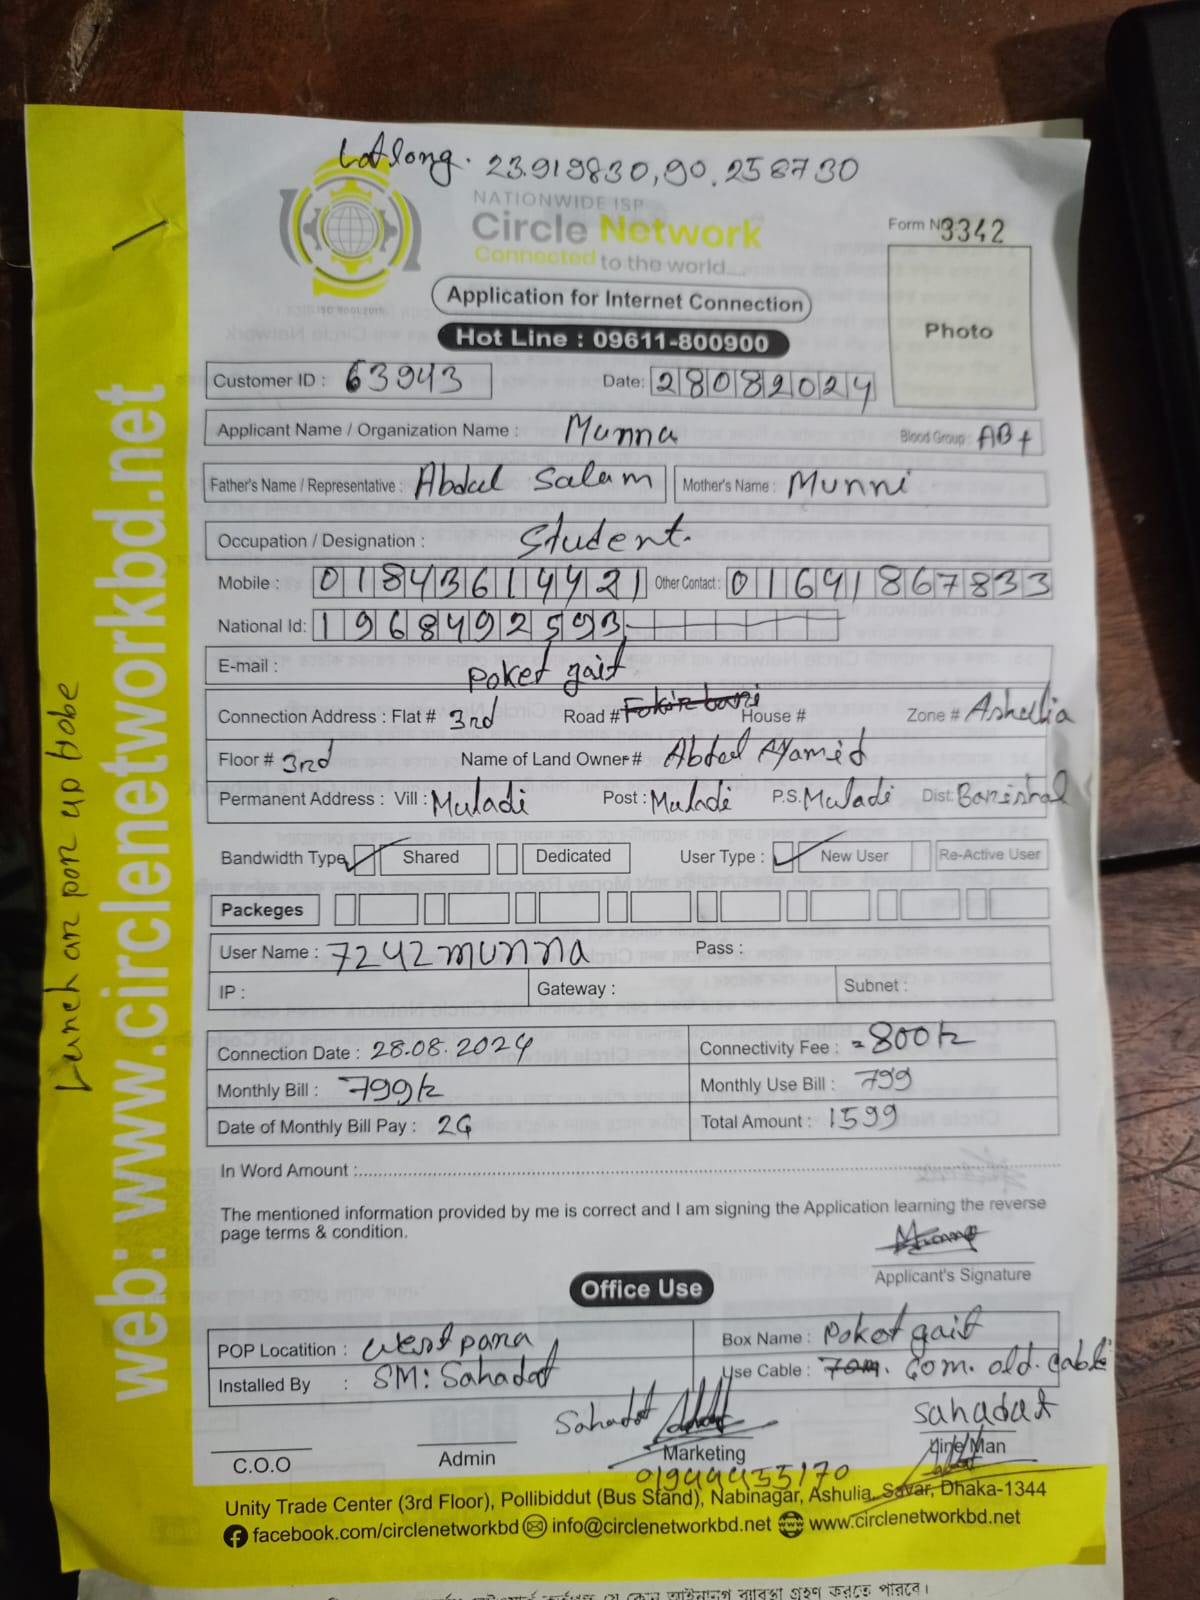 Lat long. 23.919830, 90.258730
NATIONWIDE ISP
Circle Network
Connected to the world...
Form N 3342
Application for Internet Connection
Photo
Hot Line : 09611-800900
Customer ID : 63943
Date: 28082024
Applicant Name / Organization Name : Munna
Blood Group : AB+
Father's Name / Representative : Abdul Salam
Mother's Name : Munni
Occupation / Designation : Student.
Mobile : 01843614421
Other Contact : 01641867833
National Id: 1968492593
E-mail :
Poket gait
Connection Address : Flat # 3rd Road # Fokir bari House # Zone # Ashulia
Floor # 3rd Name of Land Owner # Abdul
Permanent Address : Vill : Muladi Post : Muladi P.S. Muladi Dist: Barishal
Bandwidth Type Shared Dedicated User Type : New User Re-Active User
Packeges
User Name : 7242munna Pass :
IP : Gateway : Subnet :
Connection Date : 28.08.2024 Connectivity Fee : = 800/=
Monthly Bill : 799/= Monthly Use Bill : 799
Date of Monthly Bill Pay : Total Amount : 1599
In Word Amount :
The mentioned information provided by me is correct and I am signing the Application learning the reverse
page terms & condition.
Applicant's Signature
Office Use
POP Locatition : West para Box Name : Poket gait
Installed By : SM: Sahadat Use Cable : 70m. 60m. old. cable
Sahadat
Sahadat
C.O.O Admin Marketing Line Man
01944455170
Unity Trade Center (3rd Floor), Pollibiddut (Bus Stand), Nabinagar, Ashulia, Savar, Dhaka-1344
facebook.com/circlenetworkbd info@circlenetworkbd.net www.circlenetworkbd.net
web: www.circlenetworkbd.net
Lunch ar por up hobe